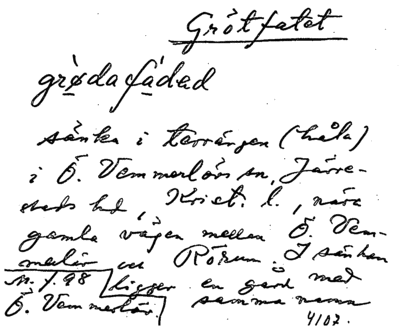 Grötfatet
grø̀dafàded
sänka i terrängen (håla)
i Ö. Vemmerlövs sn, Järre-
stads hd, Krist. l., nära
gamla vägen mellan Ö. Vem-
merlöv och Rörum. I sänkan
M. 1.98 ligger en gård med
Ö. Vemmerlöv. samma namn
4107.